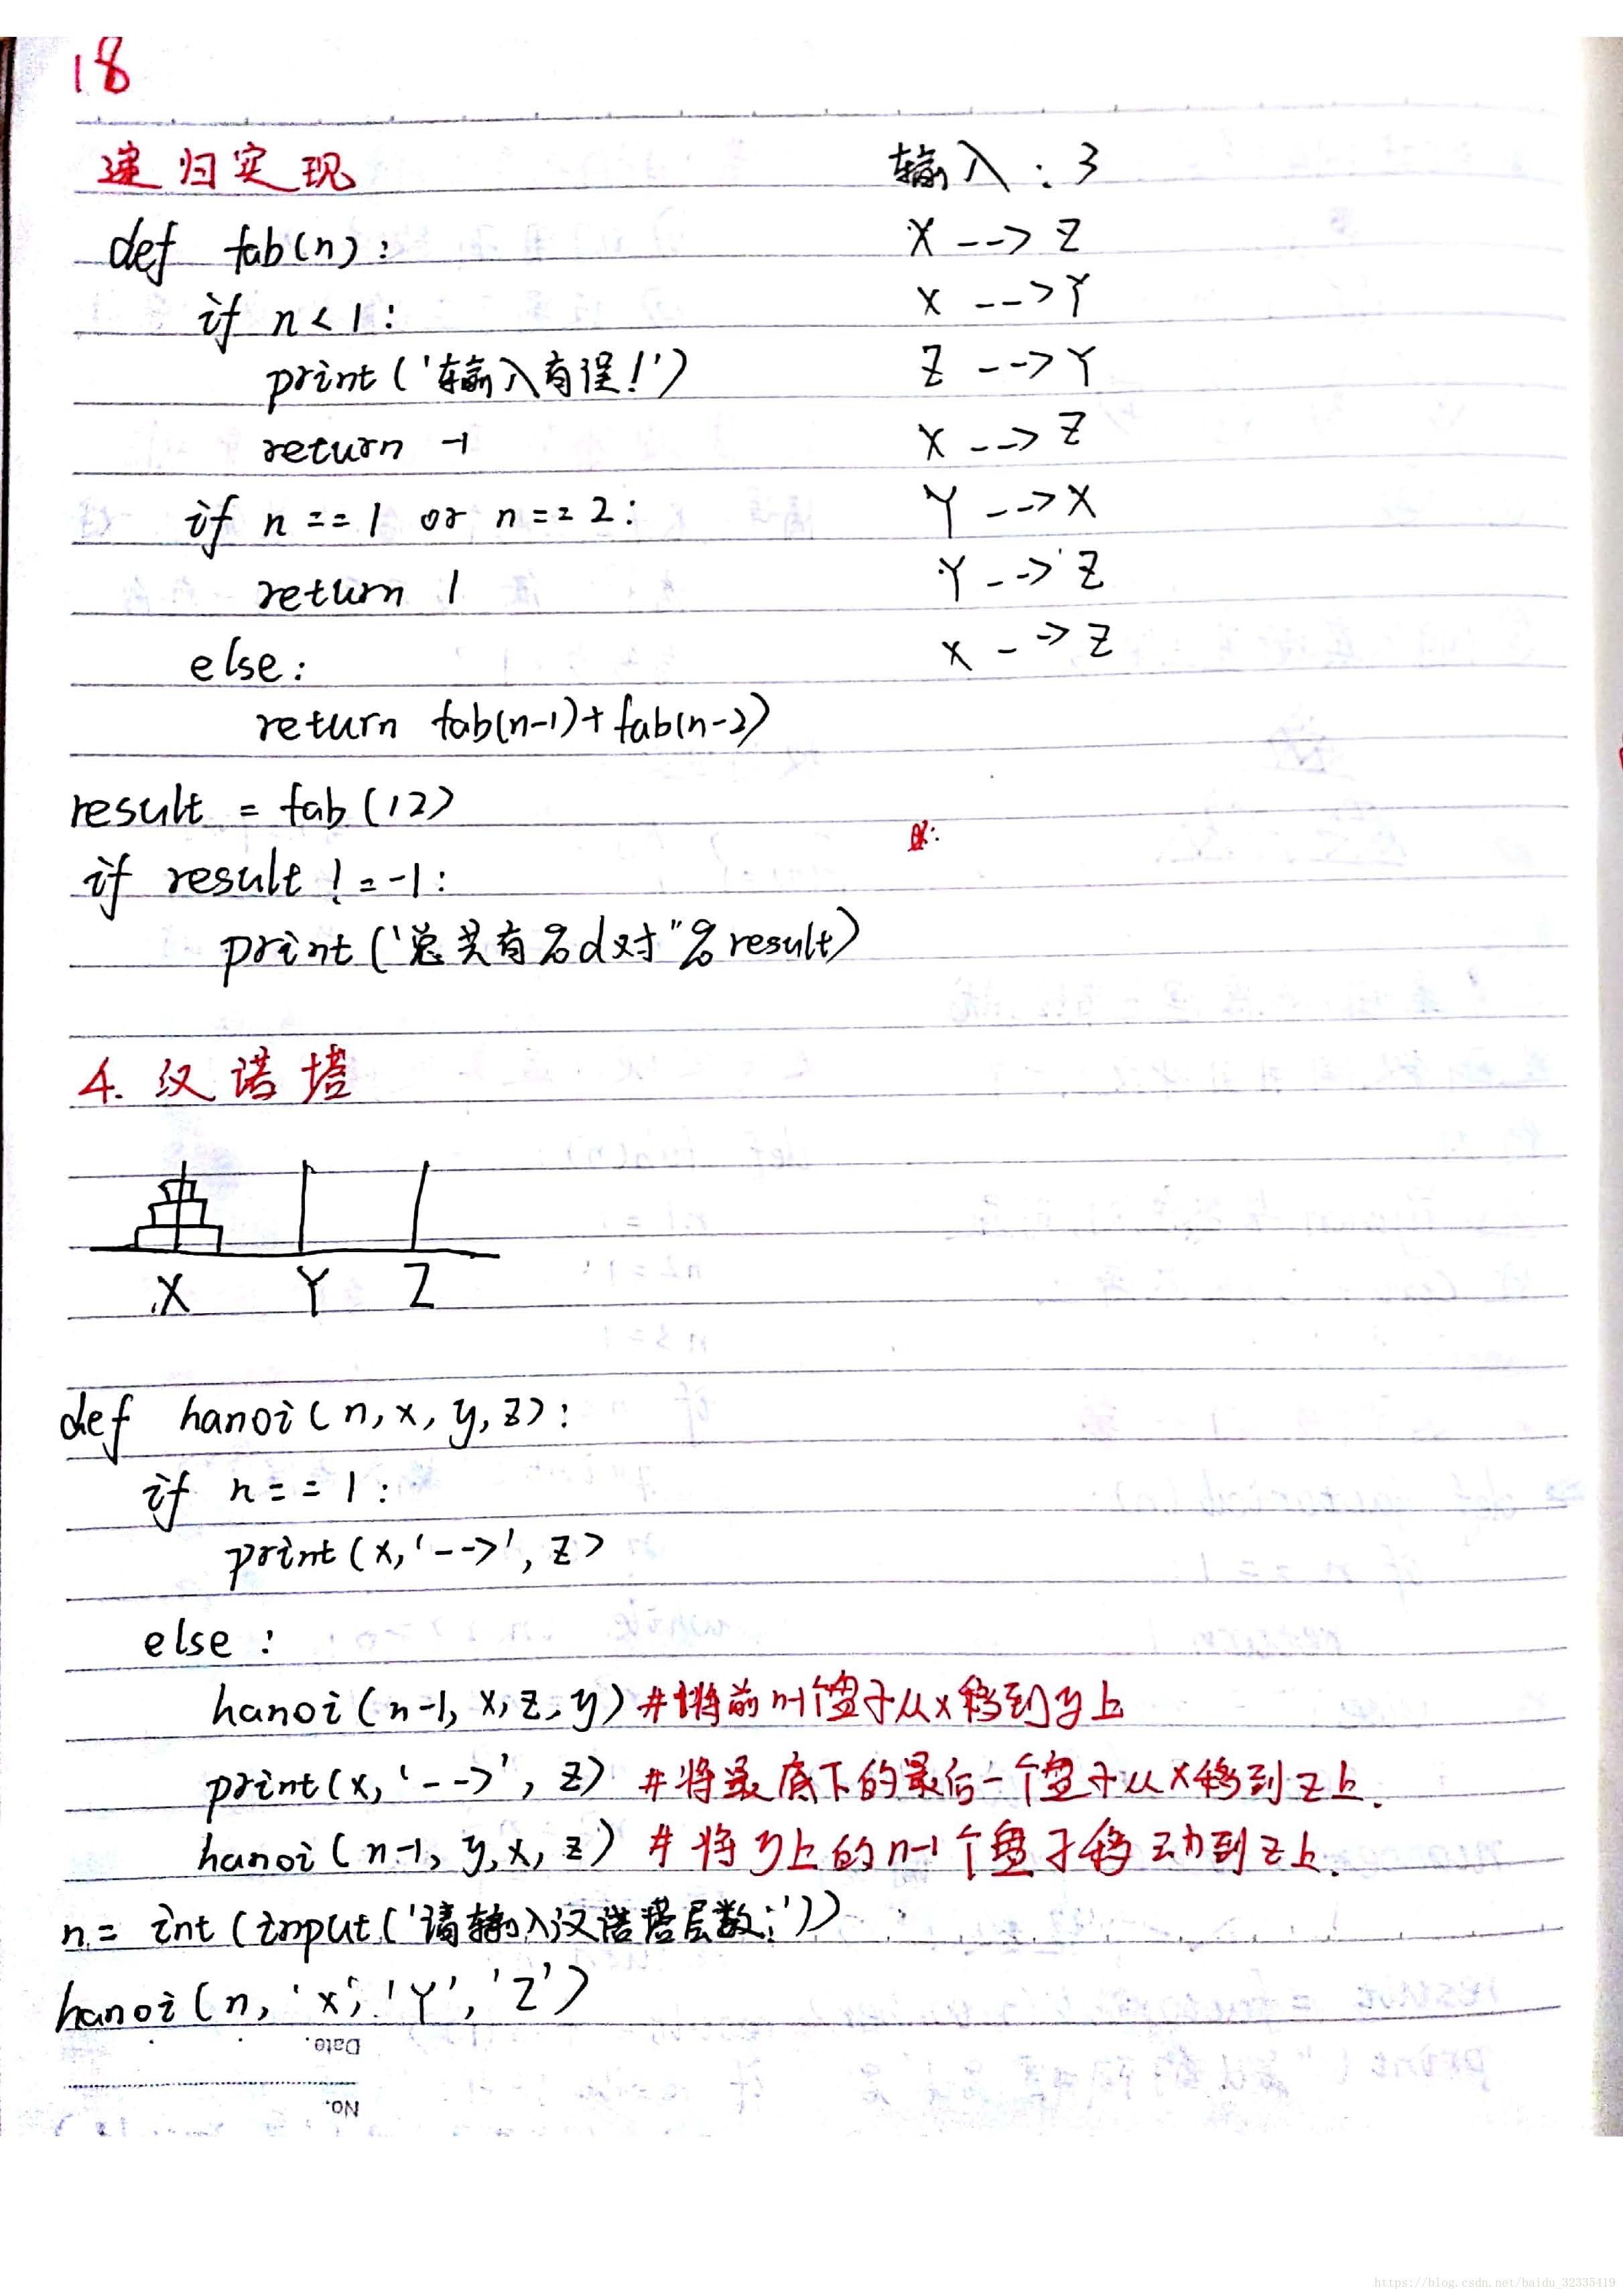 18
递归实现
def fab(n):
if n < 1:
print('输入有误!')
return -1
if n == 1 or n == 2:
return 1
else:
return fab(n-1)+fab(n-2)
result = fab(12)
if result != -1:
print('总共有%d对"%result)
输入:3
X --> Z
X --> Y
Z --> Y
X --> Z
Y --> X
Y --> Z
X --> Z
4. 汉诺塔
X Y Z
def hanoi(n,x,y,z):
if n == 1:
print(x,'-->',z)
else:
hanoi(n-1,x,z,y) #将前n-1个盘子从x移到y上
print(x,'-->',z) #将最底下的最后一个盘子从x移到z上.
hanoi(n-1,y,x,z) #将y上的n-1个盘子移动到z上.
n = int(input('请输入汉诺塔层数:'))
hanoi(n,'X','Y','Z')
Date.
No.
https://blog.csdn.net/baidu_32335419